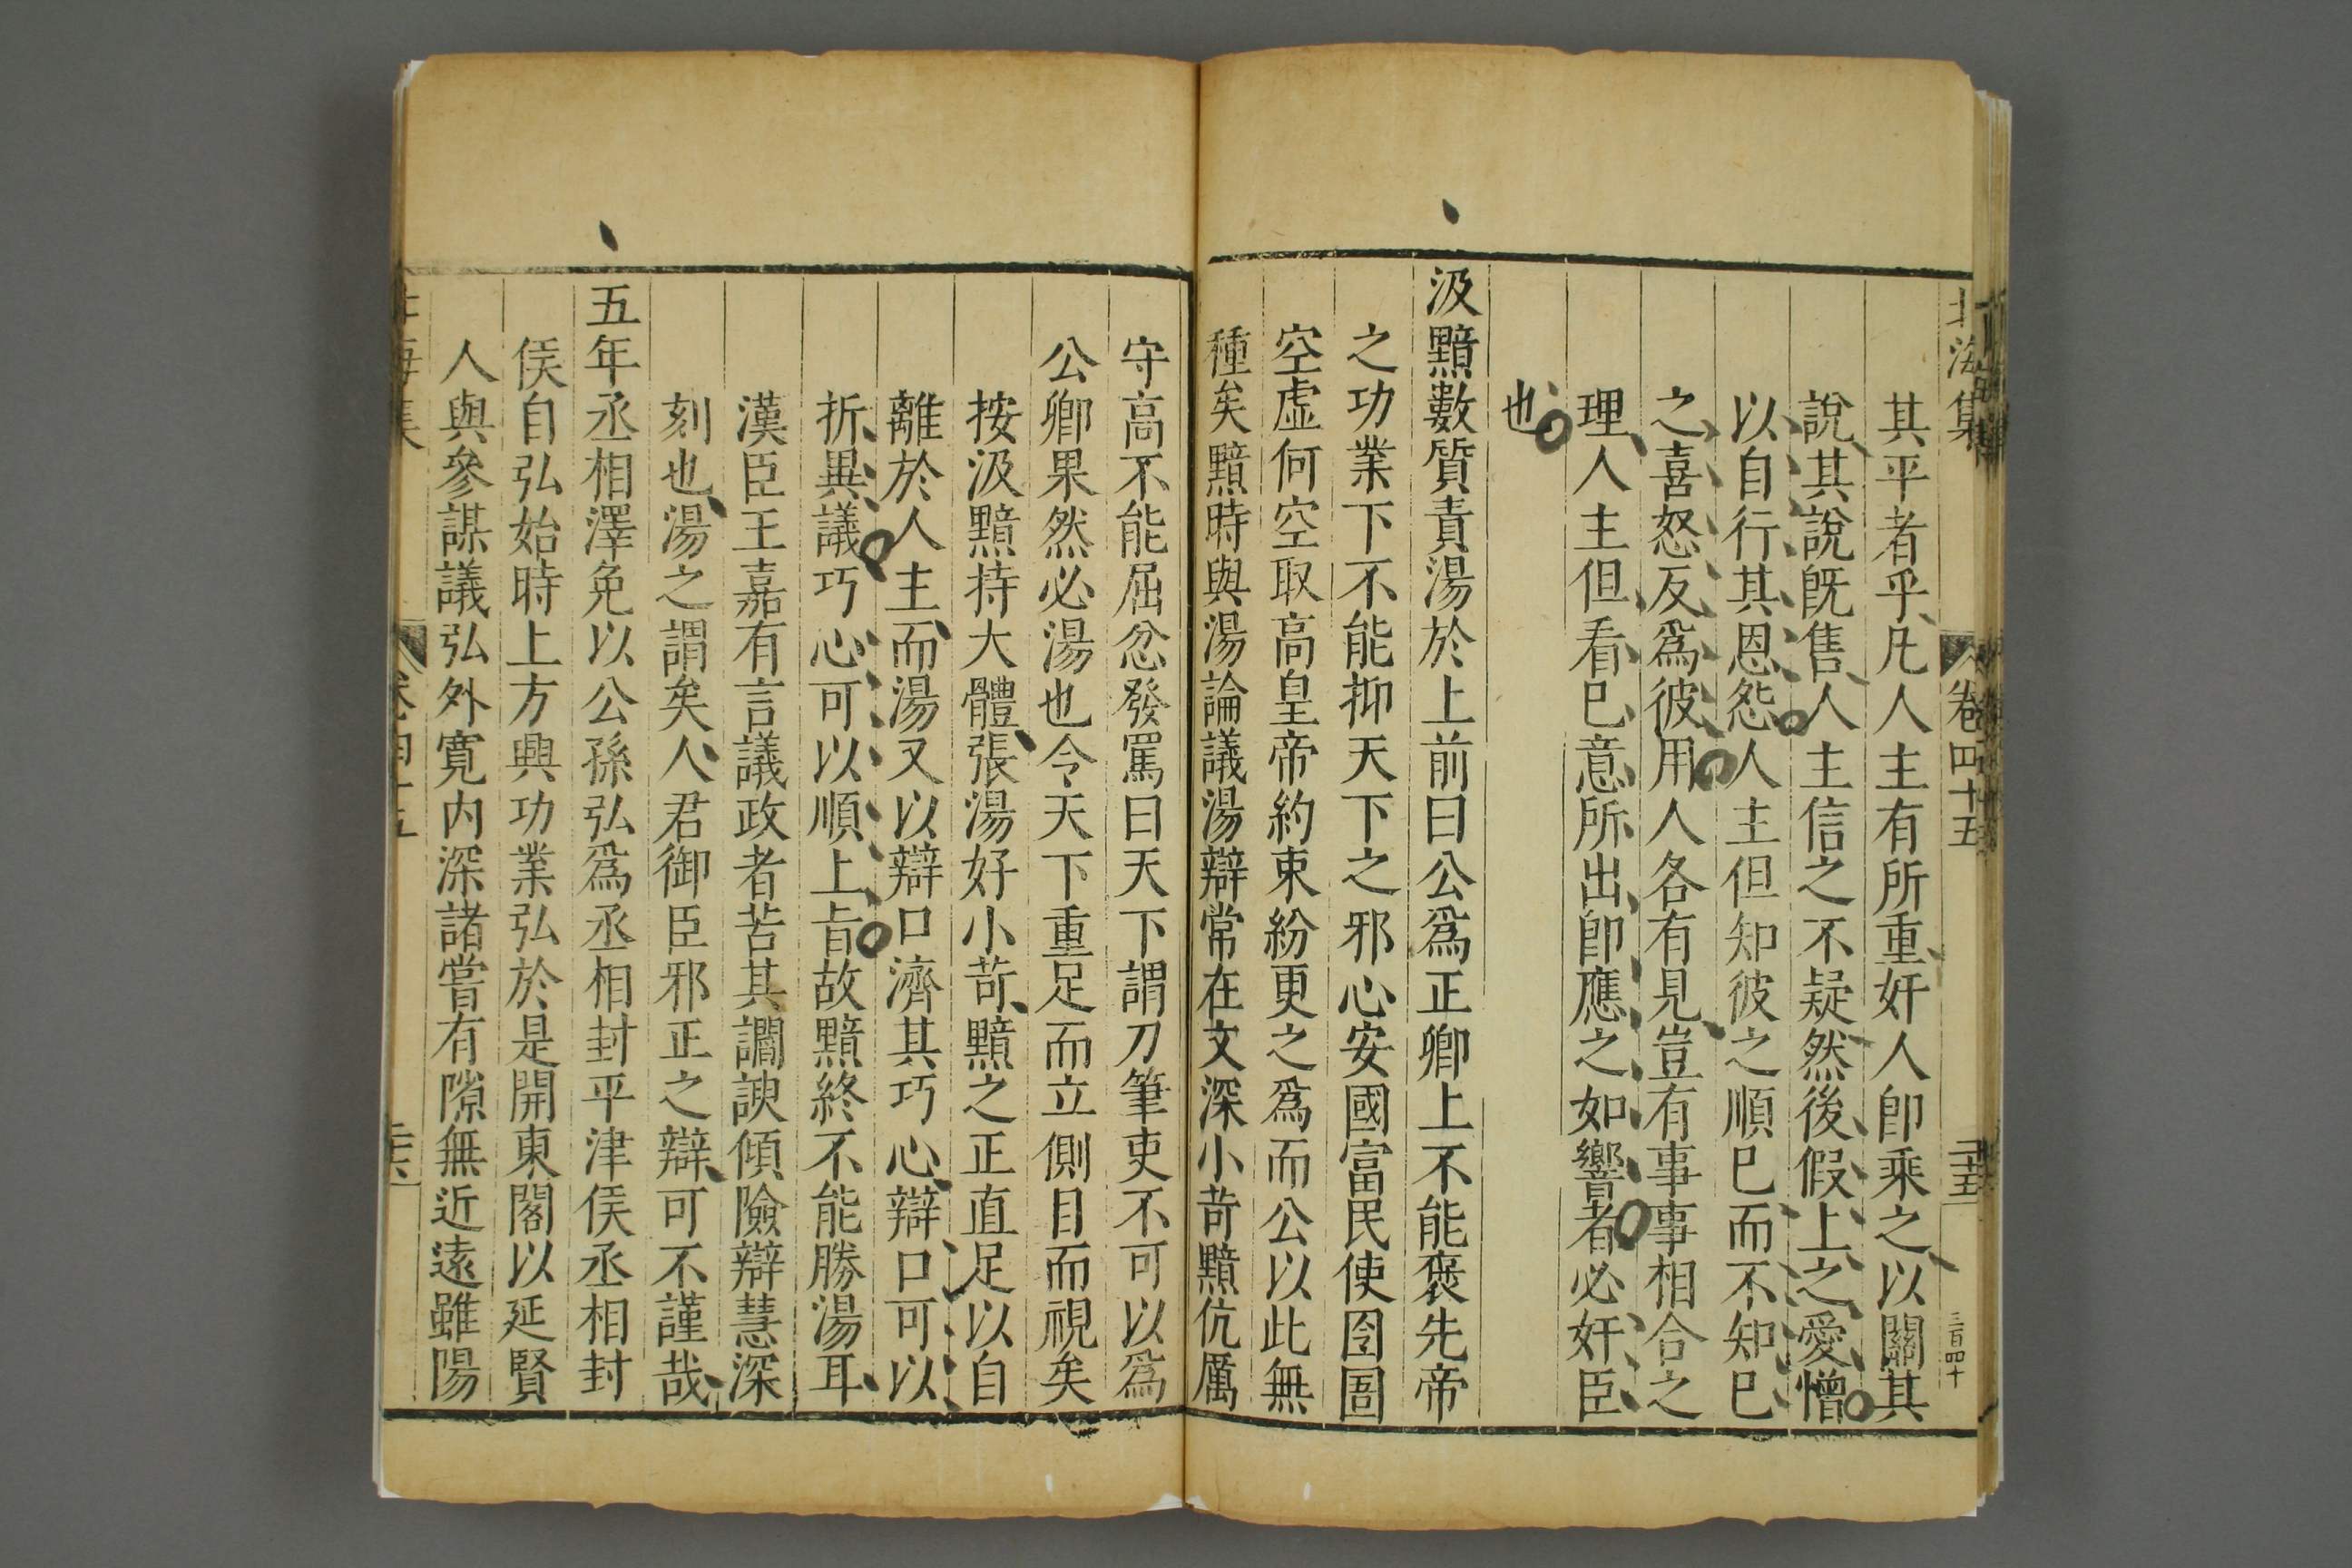 北海集 卷四十五 二十五 三百四十
其平者乎凡人主有所重奸人卽乘之以關其
說其說旣售人主信之不疑然後假上之愛憎
以自行其恩怨人主但知彼之順已而不知已
之喜怒反爲彼用人各有見豈有事事相合之
理人主但看已意所出卽應之如響者必奸臣
也
汲黯數質責湯於上前曰公爲正卿上不能褒先帝
之功業下不能抑天下之邪心安國富民使囹圄
空虛何空取高皇帝約束紛更之爲而公以此無
種矣黯時與湯論議湯辯常在文深小苛黯伉厲
守高不能屈忿發罵曰天下謂刀筆吏不可以爲
公卿果然必湯也今天下重足而立側目而視矣
按汲黯持大體張湯好小苛黯之正直足以自
離於人主而湯又以辯口濟其巧心辯口可以
折異議巧心可以順上旨故黯終不能勝湯耳
漢臣王嘉有言議政者苦其讇諛傾險辯慧深
刻也湯之謂矣人君御臣邪正之辯可不謹哉
五年丞相澤免以公孫弘爲丞相封平津侯丞相封
侯自弘始時上方興功業弘於是開東閣以延賢
人與參謀議弘外寬內深諸嘗有隙無近遠雖陽